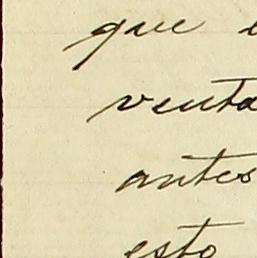 que
venta
antes
esto